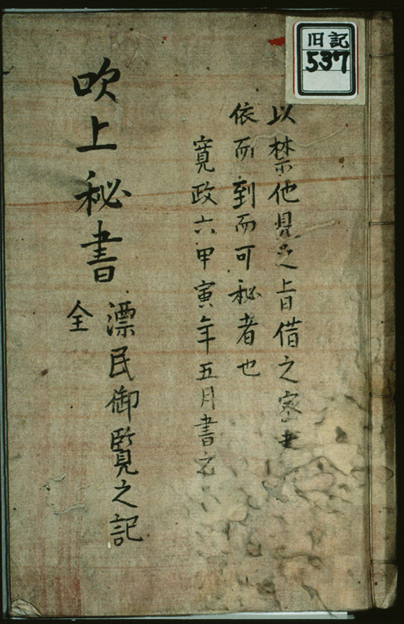 旧記
537
以禁他見之旨借之密書
依而到而可秘者也
寛政六甲寅年五月書之
吹上秘書
漂民御覧之記
全